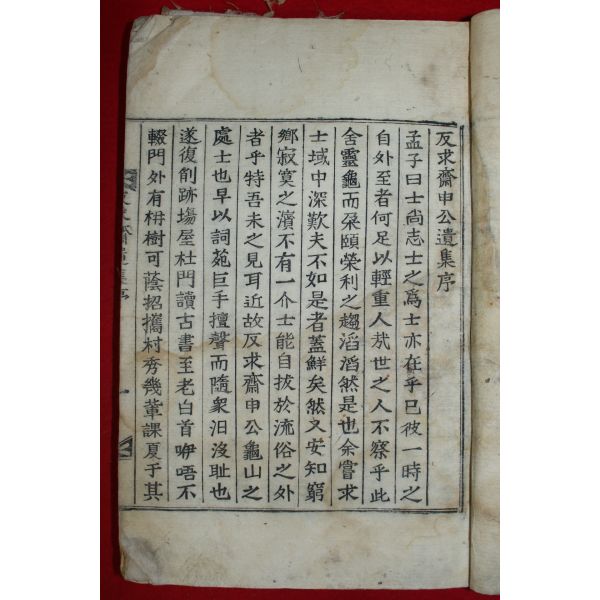 反求齋申公遺集序
孟子曰士尚志士之爲士亦在乎已彼一時之
自外至者何足以輕重人㢤世之人不察乎此
舍靈龜而朶頤榮利之趨滔滔然是也余嘗求
士域中深歎夫不如是者蓋鮮矣然又安知窮
鄉寂寞之濵不有一介士能自拔於流俗之外
者乎特吾未之見耳近故反求齋申公龜山之
處士也早以詞苑巨手擅聲而隨衆汨沒耻也
遂復削跡塲屋杜門讀古書至老白首咿唔不
輟門外有枏樹可蔭招攜村秀幾輩課夏于其
反求齋遺集序
一